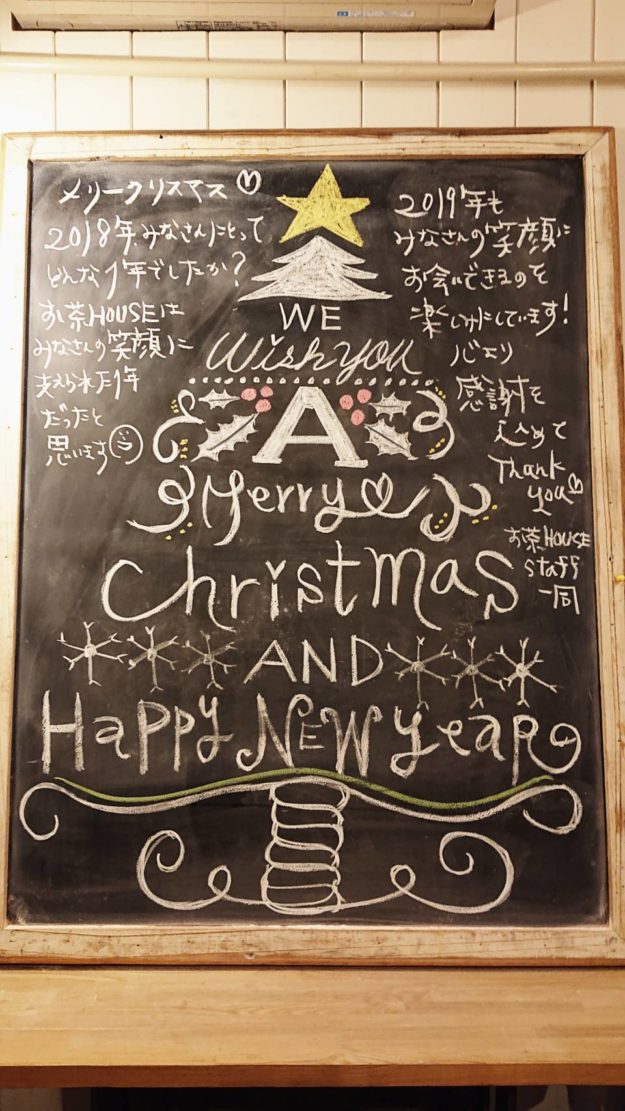 メリークリスマス♡
2018年、みなさんにとって
どんな1年でしたか?
お茶HOUSEは
みなさんの笑顔に
支えられた1年
だったと
思います
2019年も
みなさんの笑顔に
お会いできるのを
楽しみにしています!
心より
感謝を
込めて
Thank
you♡
お茶HOUSE
staff
一同
WE
Wish you
A
Merry♡
Christmas
AND
Happy NEW year